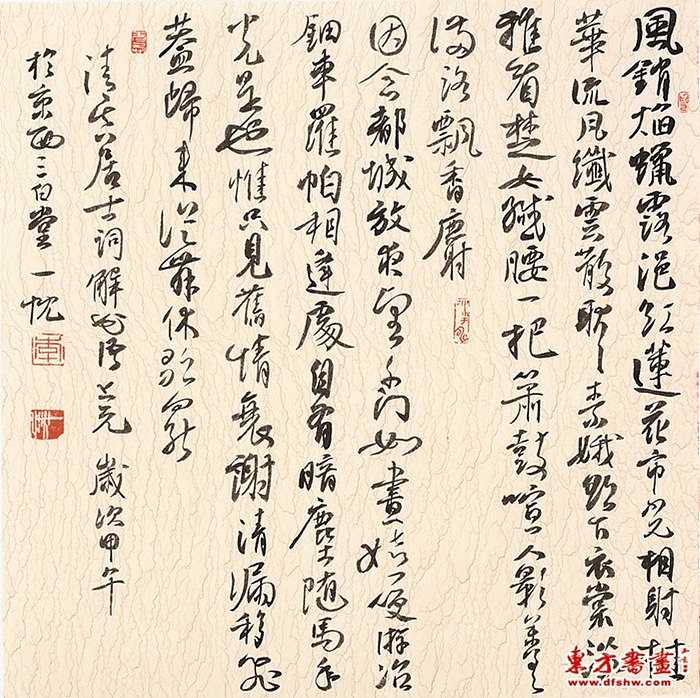 風銷焰蠟露浥紅蓮花市光相射桂
華流瓦纖雲散耿〻素娥欲下衣裳淡
雅看楚女纖腰一把簫鼓喧人影參差
滿路飄香麝
因念都城放夜望千門如晝嬉笑游冶
鈿車羅帕相逢處自有暗塵隨馬年
光是也惟只見舊情衰謝清漏移飛
蓋歸來從舞休歌罷
清真居士詞解語花上元 歲次甲午
於京西三白堂一忱
東方書畫
www.dfshw.com